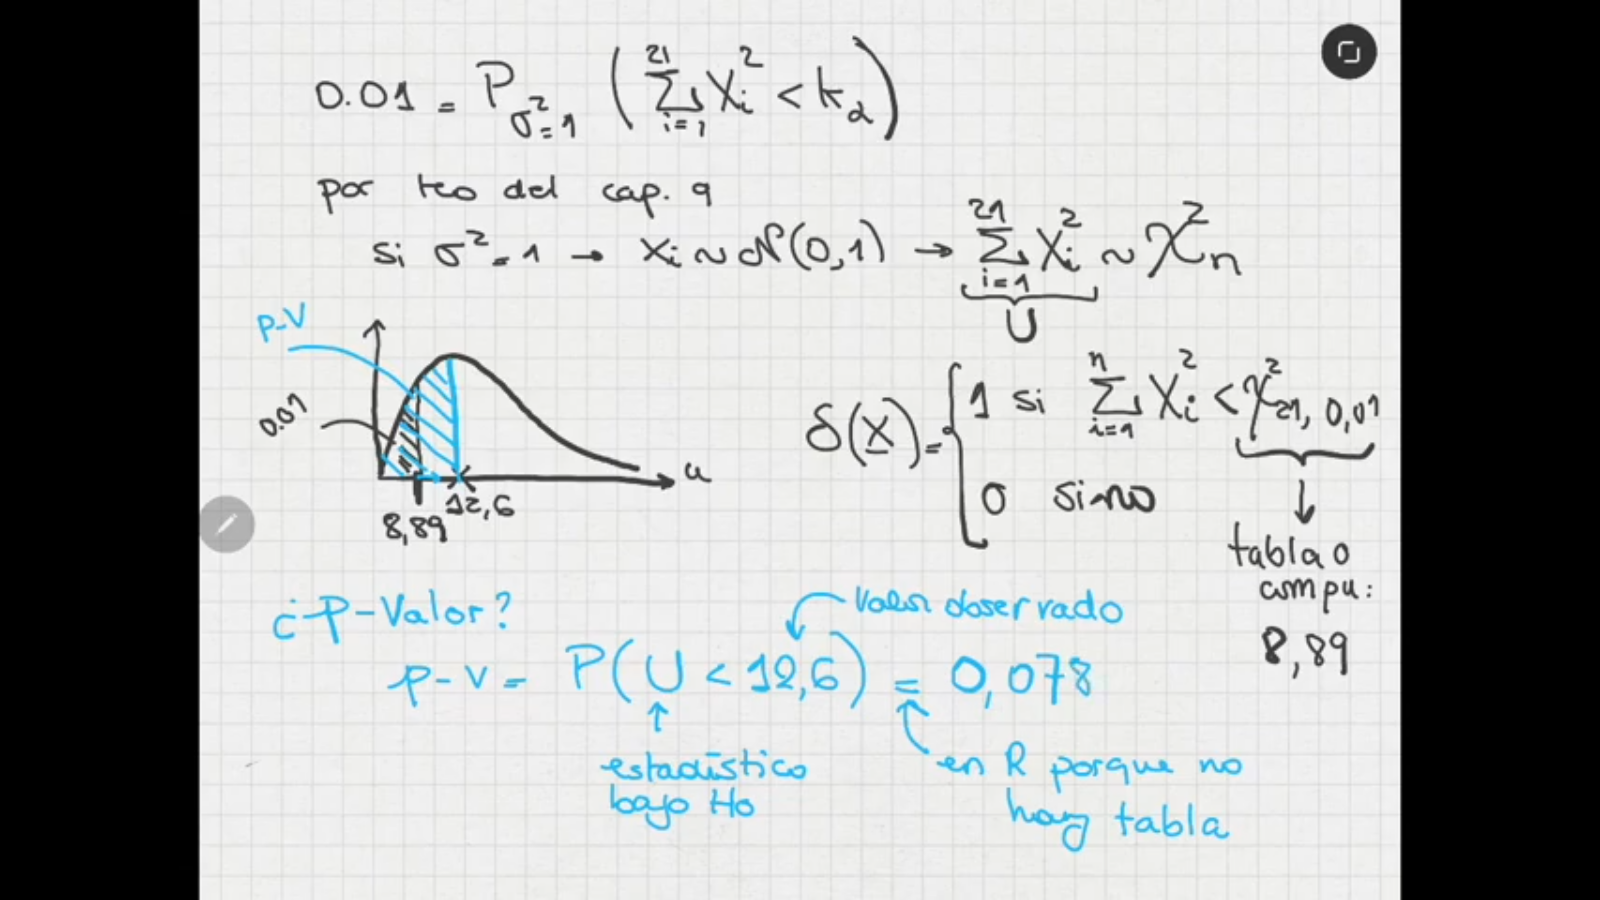 0.01 = P_{σ²=1} ( ∑_{i=1}^{21} X_i² < k_α )
por teo del cap. 9
si σ² = 1 → X_i ~ N(0,1) → ∑_{i=1}^{21} X_i² ~ χ²_n
U
P-V
0.01
8,89
12,6
u
δ(X) = { 1 si ∑_{i=1}^{n} X_i² < χ²_{21, 0,01}
0 sino
tabla o
compu:
8,89
¿P-Valor?
valor observado
p-v = P(U < 12,6) = 0,078
estadístico
bajo Ho
en R porque no
hay tabla